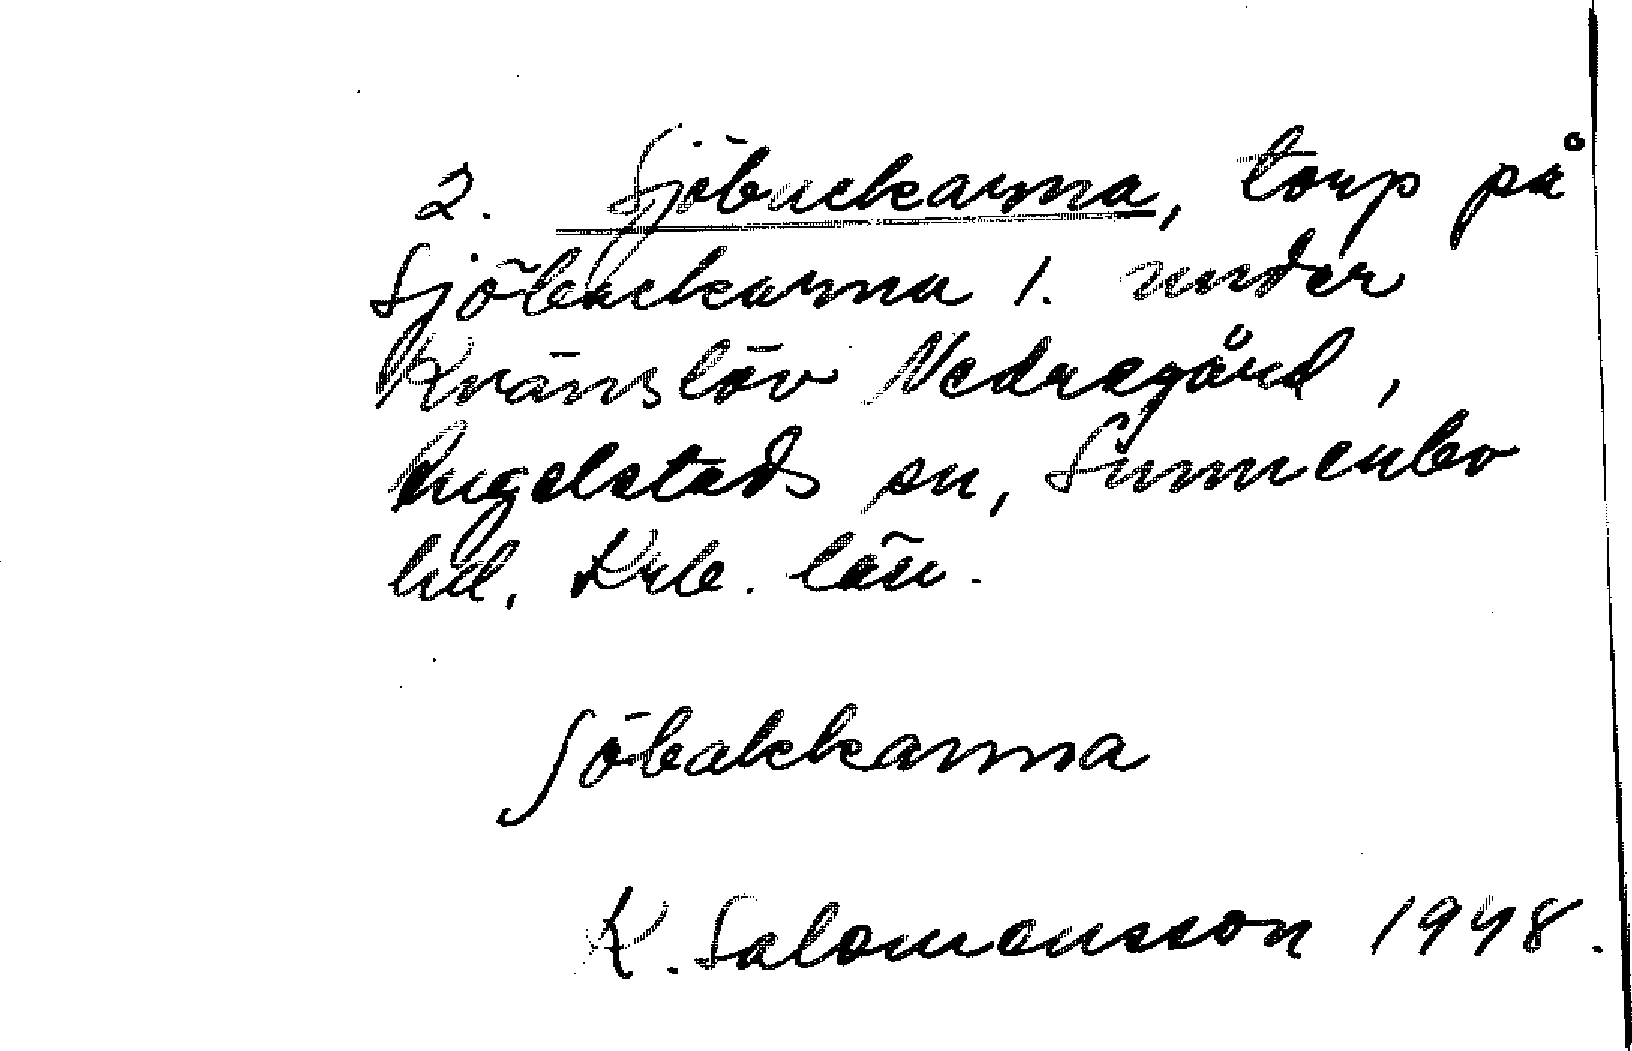 2. Sjöbackarna, torp på
Sjöbackarna 1. under
Kvänslöv Nedregård,
Angelstads sn, Sunnerbo
hd, Krb. län.
ʃöbakkarna
K. Salomonsson 1948.